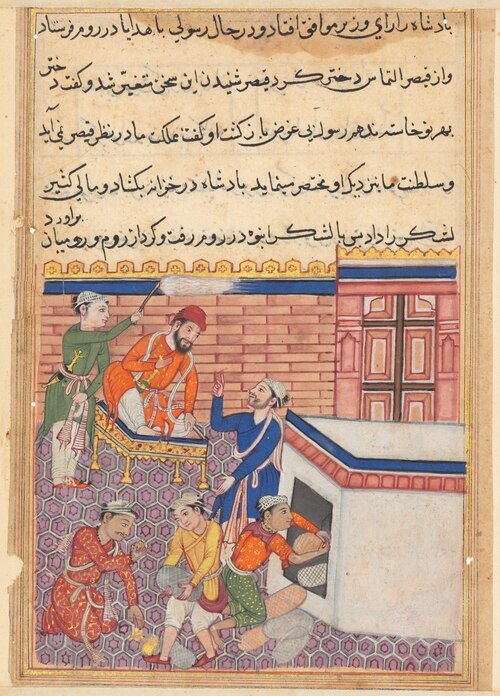 پادشاه را رای وزیر موافق افتاد و در حال رسولی با هدایا در روم فرستاد
و از قیصر التماس دختر کرد قیصر شنیدن این سخن متغیر شد و گفت دختر
بهر نو خاسته ندهم رسول بی غرض بازگشت و گفت مملکت ما در نظر قیصر نمی آید
و سلطنت ما نزدیک او مختصر مینماید پادشاه در خزاین بکشاد و مالی کثیر
بر آورد
لشکر را داد پس با لشکر انبوه در روم رفت و گرد از روم و رومیان